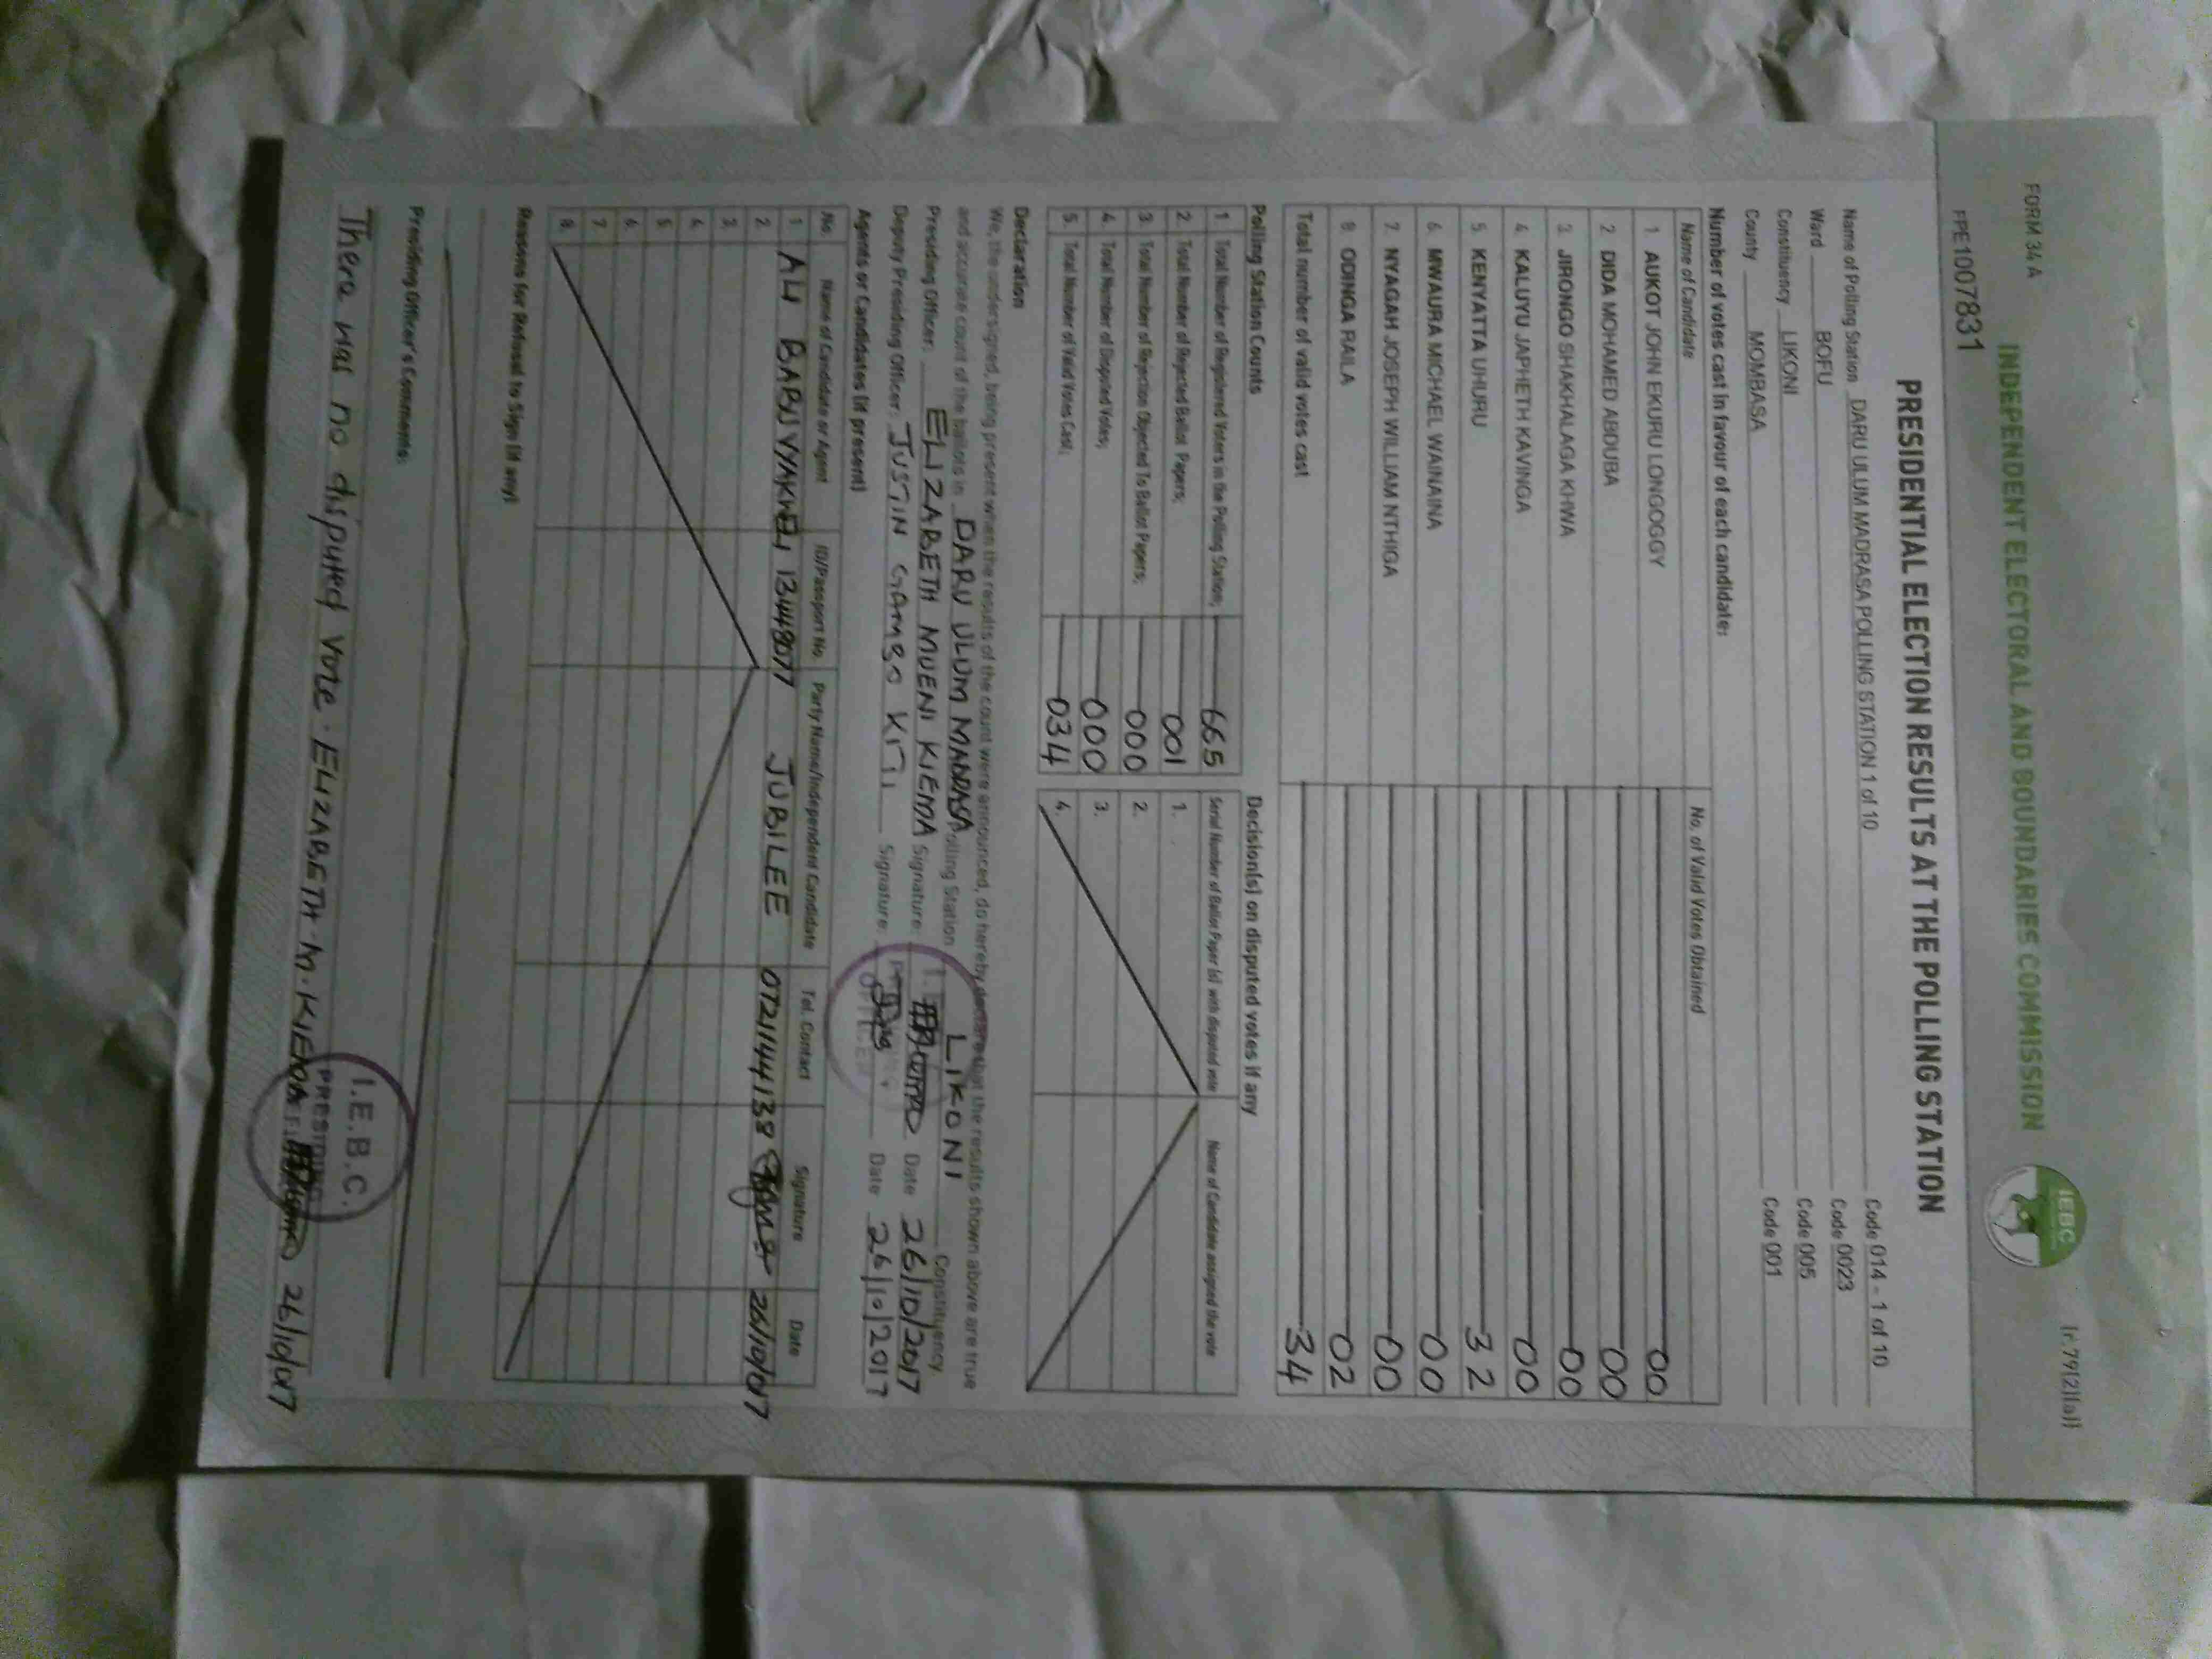 FORM 34 A
(r.79(2)(a))
INDEPENDENT ELECTORAL AND BOUNDARIES COMMISSION
IEBC
FPE1007831
PRESIDENTIAL ELECTION RESULTS AT THE POLLING STATION
Name of Polling Station DARU ULUM MADRASA POLLING STATION 1 of 10 Code 014 - 1 of 10
Ward BOFU Code 0023
Constituency LIKONI Code 005
County MOMBASA Code 001
Number of votes cast in favour of each candidate:
Name of Candidate No. of Valid Votes Obtained
1 AUKOT JOHN EKURU LONGOGGY 00
2 DIDA MOHAMED ABDUBA 00
3 JIRONGO SHAKHALAGA KHWA 00
4 KALUYU JAPHETH KAVINGA 00
5 KENYATTA UHURU 32
6 MWAURA MICHAEL WAINAINA 00
7 NYAGAH JOSEPH WILLIAM NTHIGA 00
8 ODINGA RAILA 02
Total number of valid votes cast 34
Polling Station Counts Decision(s) on disputed votes if any
1 Total Number of Registered Voters in the Polling Station; 665 Serial Number of Ballot Paper (s) with disputed vote Name of Candidate assigned the vote
2. Total Number of Rejected Ballot Papers; 001 1.
3. Total Number of Rejection Objected To Ballot Papers; 000 2.
4. Total Number of Disputed Votes; 000 3.
5. Total Number of Valid Votes Cast; 034 4.
Declaration
We, the undersigned, being present when the results of the count were announced, do hereby declare that the results shown above are true
and accurate count of the ballots in DARU ULUM MADRASA Polling Station LIKONI Constituency
Presiding Officer: ELIZABETH MUENI KIEMA Signature: Date 26/10/2017
Deputy Presiding Officer: JUSTIN GAMBO KITI Signature: Date 26/10/2017
Agents or Candidates (if present)
No. Name of Candidate or Agent ID/Passport No. Party Name/Independent Candidate Tel. Contact Signature Date
1 ALI BABU VYAKWELI 13448077 JUBILEE 0721144138 26/10/017
2.
3.
4.
5
6.
7.
8.
Reasons for Refusal to Sign (if any)
Presiding Officer's Comments:
There was no disputed vote. ELIZABETH M. KIEMA 26/10/017
I.E.B.C.
PRESIDING